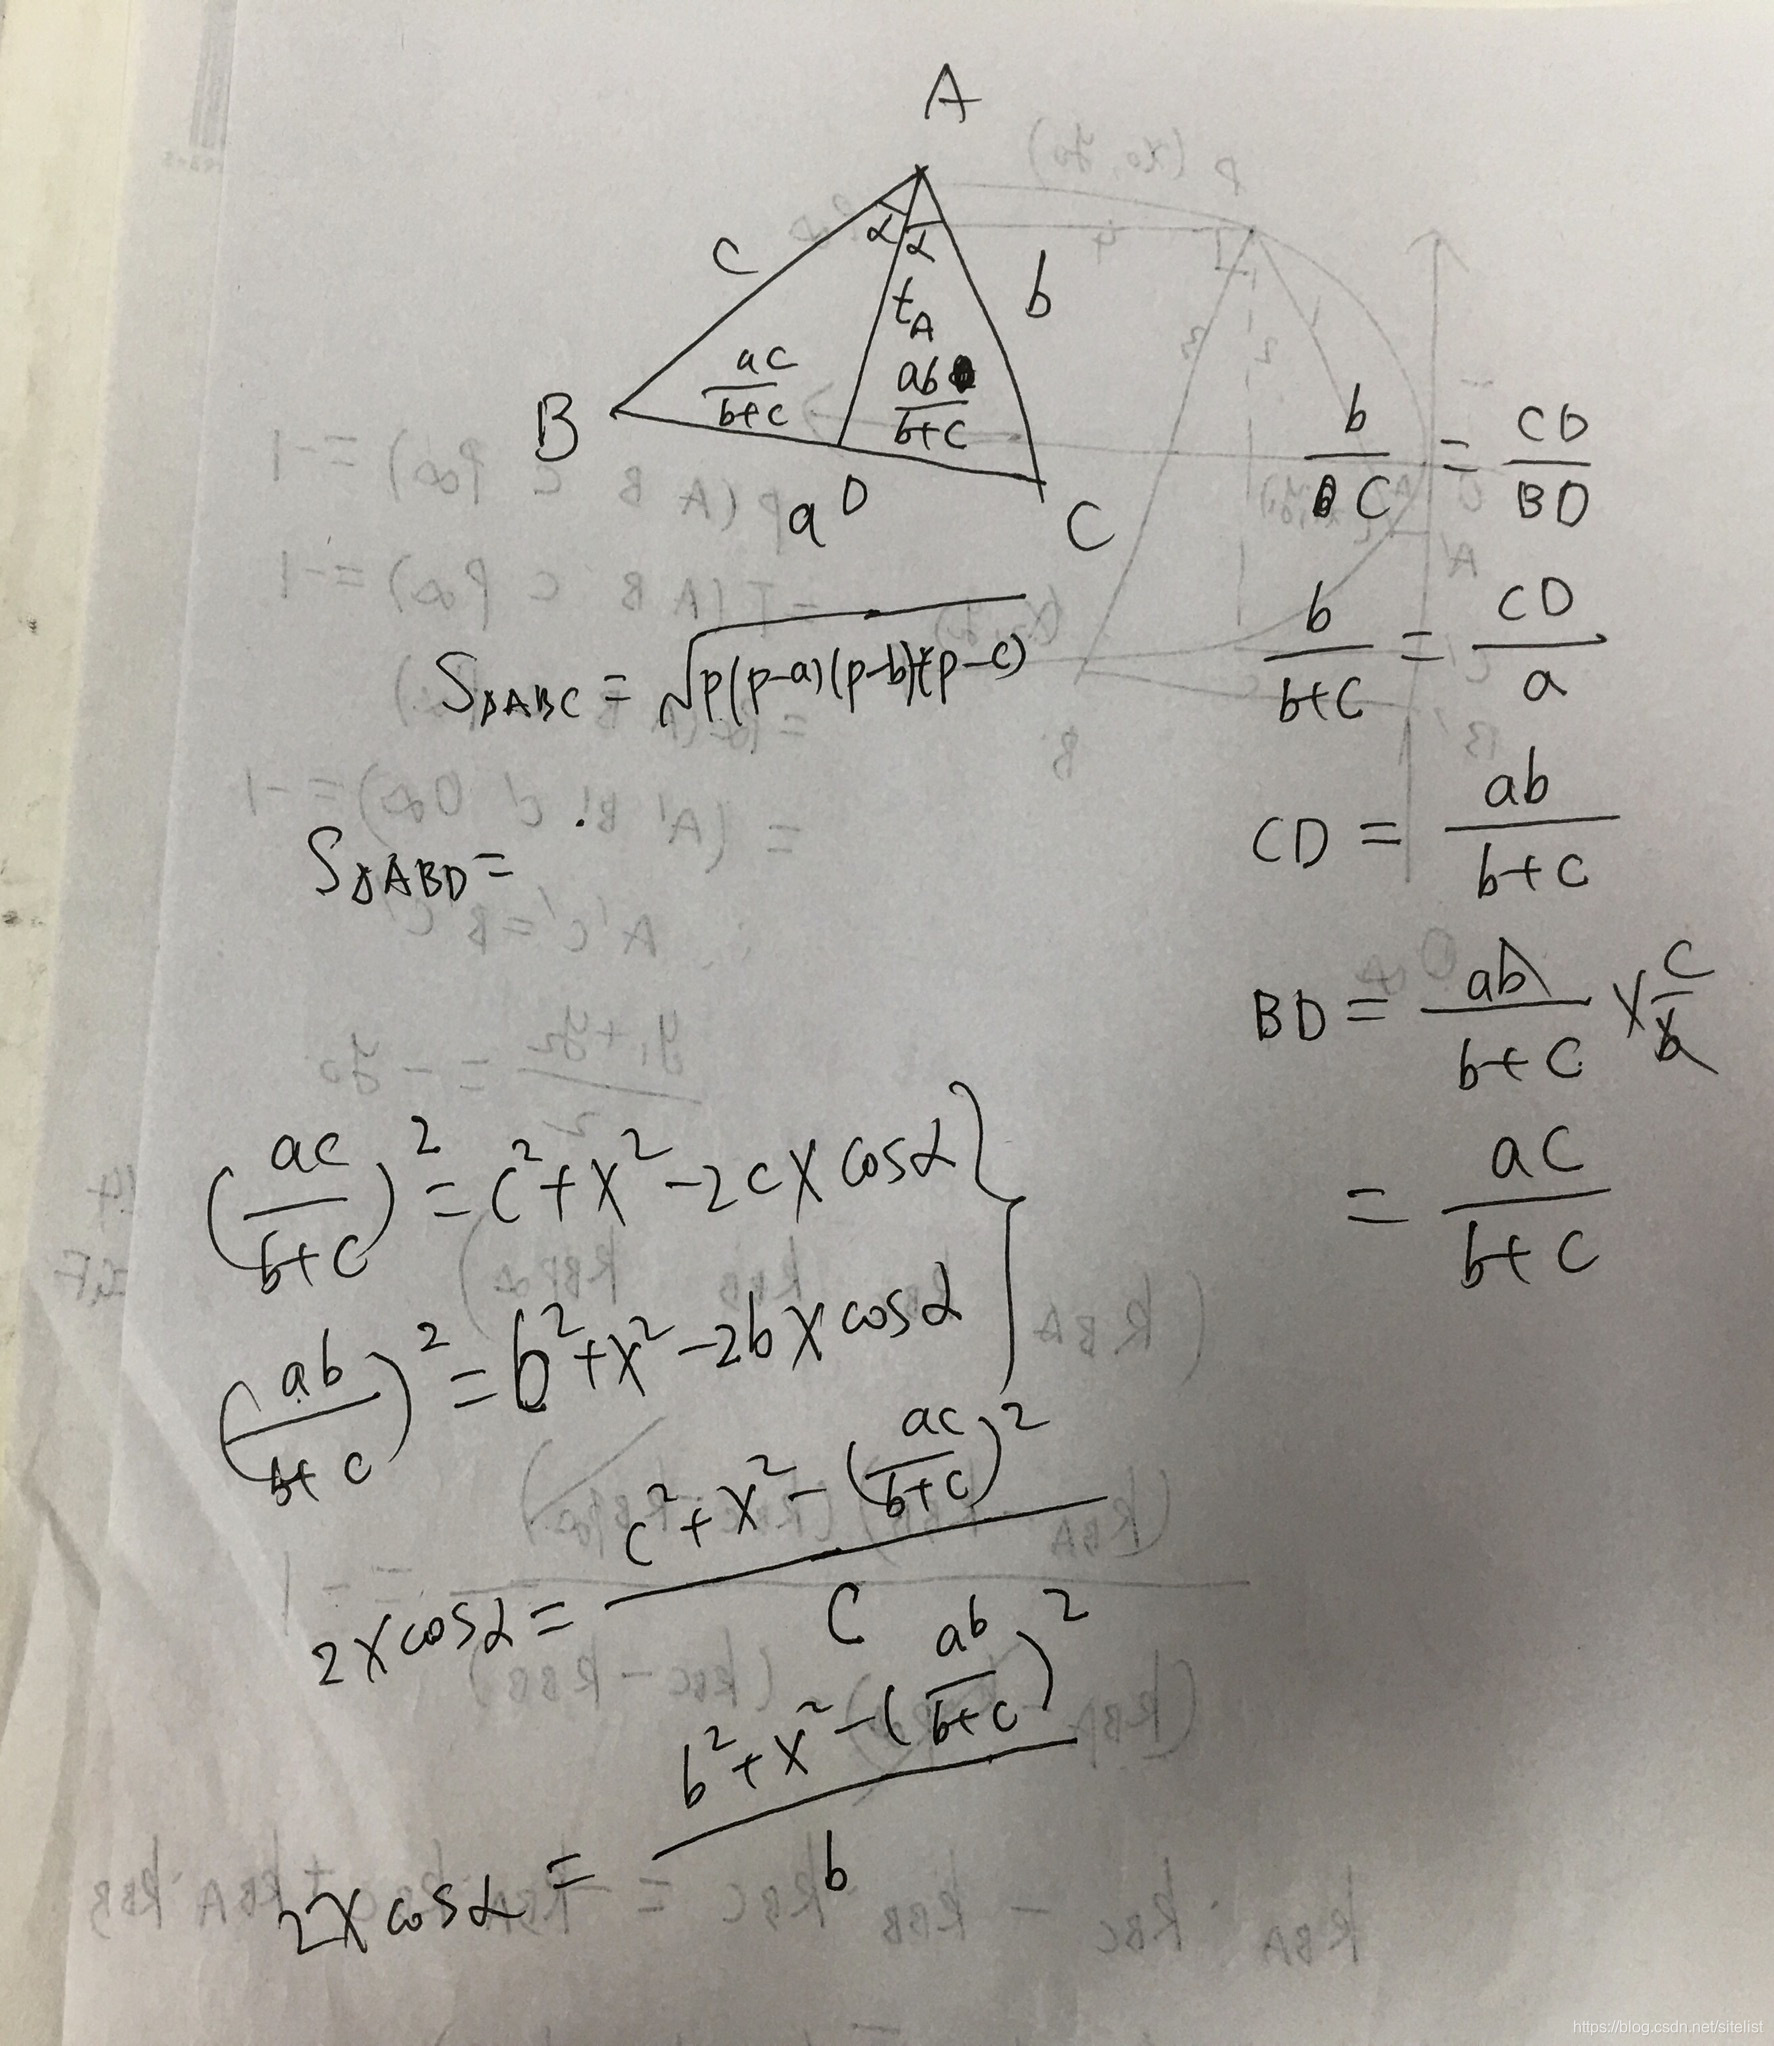 A
α α
c
b
t_A
\frac{ac}{b+c}
\frac{ab}{b+c}
B
D
a
C
\frac{b}{c} = \frac{CD}{BD}
\frac{b}{b+c} = \frac{CD}{a}
S_{△ABC} = \sqrt{p(p-a)(p-b)(p-c)}
CD = \frac{ab}{b+c}
S_{△ABD} =
BD = \frac{ab}{b+c} × \frac{c}{b}
= \frac{ac}{b+c}
(\frac{ac}{b+c})^2 = c^2 + x^2 - 2cx cosα
(\frac{ab}{b+c})^2 = b^2 + x^2 - 2bx cosα
2x cosα = \frac{c^2 + x^2 - (\frac{ac}{b+c})^2}{c}
2x cosα = \frac{b^2 + x^2 - (\frac{ab}{b+c})^2}{b}
https://blog.csdn.net/sitelist